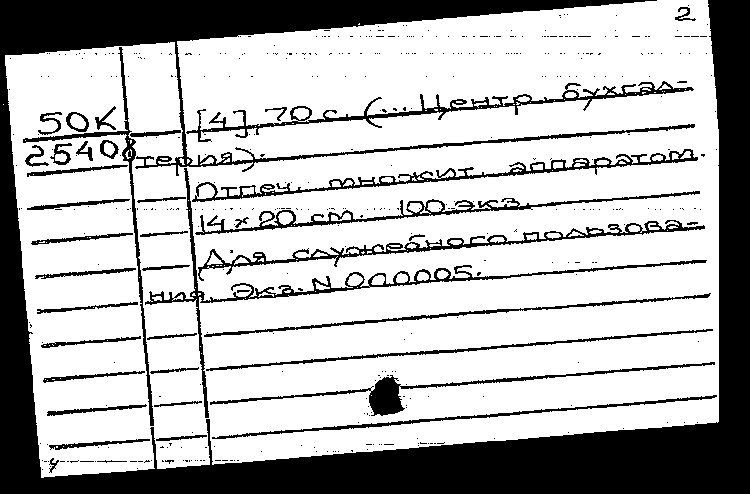 2
50К [4], 70 с. (... Центр. бухгал-
25408 терия).
Отпеч. множит. аппаратом.
14 × 20 см. 100 экз.
Для служебного пользова-
ния. Экз. N 000005.